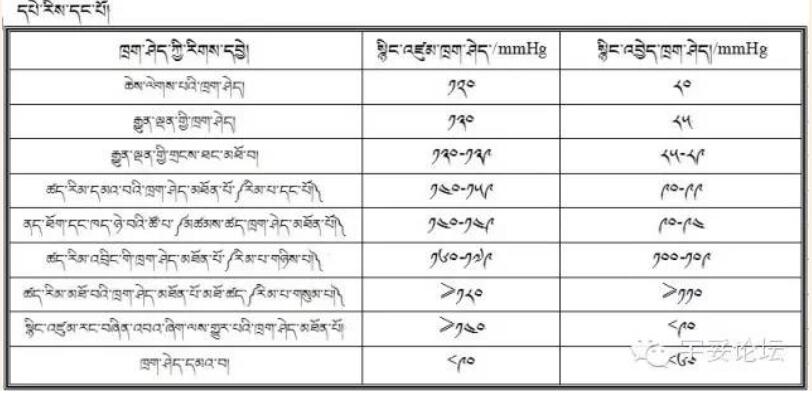 དཔེ་རིས་དང་པོ།
ཁྲག་ཤེད་ཀྱི་རིགས་དབྱེ། སྙིང་འཛུམ་ཁྲག་ཤེད་/mmHg སྙིང་འབྱེད་ཁྲག་ཤེད།/mmHg
ཆེས་ལེགས་པའི་ཁྲག་ཤེད། ༡༢༠ ༨༠
རྒྱུན་ལྡན་གྱི་ཁྲག་ཤེད། ༡༣༠ ༨༥
རྒྱུན་ལྡན་གྱི་གྲངས་ཐང་མཐོ་བ། ༡༣༠-༡༣༩ ༨༥-༨༩
ཚད་རིམ་དམའ་བའི་ཁྲག་ཤེད་མཐོན་པོ་༼རིམ་པ་དང་པོ།༽ ༡༤༠-༡༥༩ ༩༠-༩༩
ནད་ཐོག་དང་ཁད་ཉེ་བའི་ཚོ་པ་༼མཚམས་ཚད་ཁྲག་ཤེད་མཐོན་པོ།༽ ༡༤༠-༡༤༩ ༩༠-༩༤
ཚད་རིམ་འབྲིང་གི་ཁྲག་ཤེད་མཐོན་པོ་༼རིམ་པ་གཉིས་པ།༽ ༡༦༠-༡༧༩ ༡༠༠-༡༠༩
ཚད་རིམ་མཐོ་བའི་ཁྲག་ཤེད་མཐོན་པོ་མཐོ་ཚད་༼རིམ་པ་གསུམ་པ།༽ ⩾༡༨༠ ⩾༡༡༠
སྙིང་འཛུམ་རང་བཞིན་འབའ་ཞིག་ལས་གྱུར་པའི་ཁྲག་ཤེད་མཐོན་པོ། ⩾༡༤༠ <༩༠
ཁྲག་ཤེད་དམའ་བ། <༩༠ <༦༠
宇妥论坛